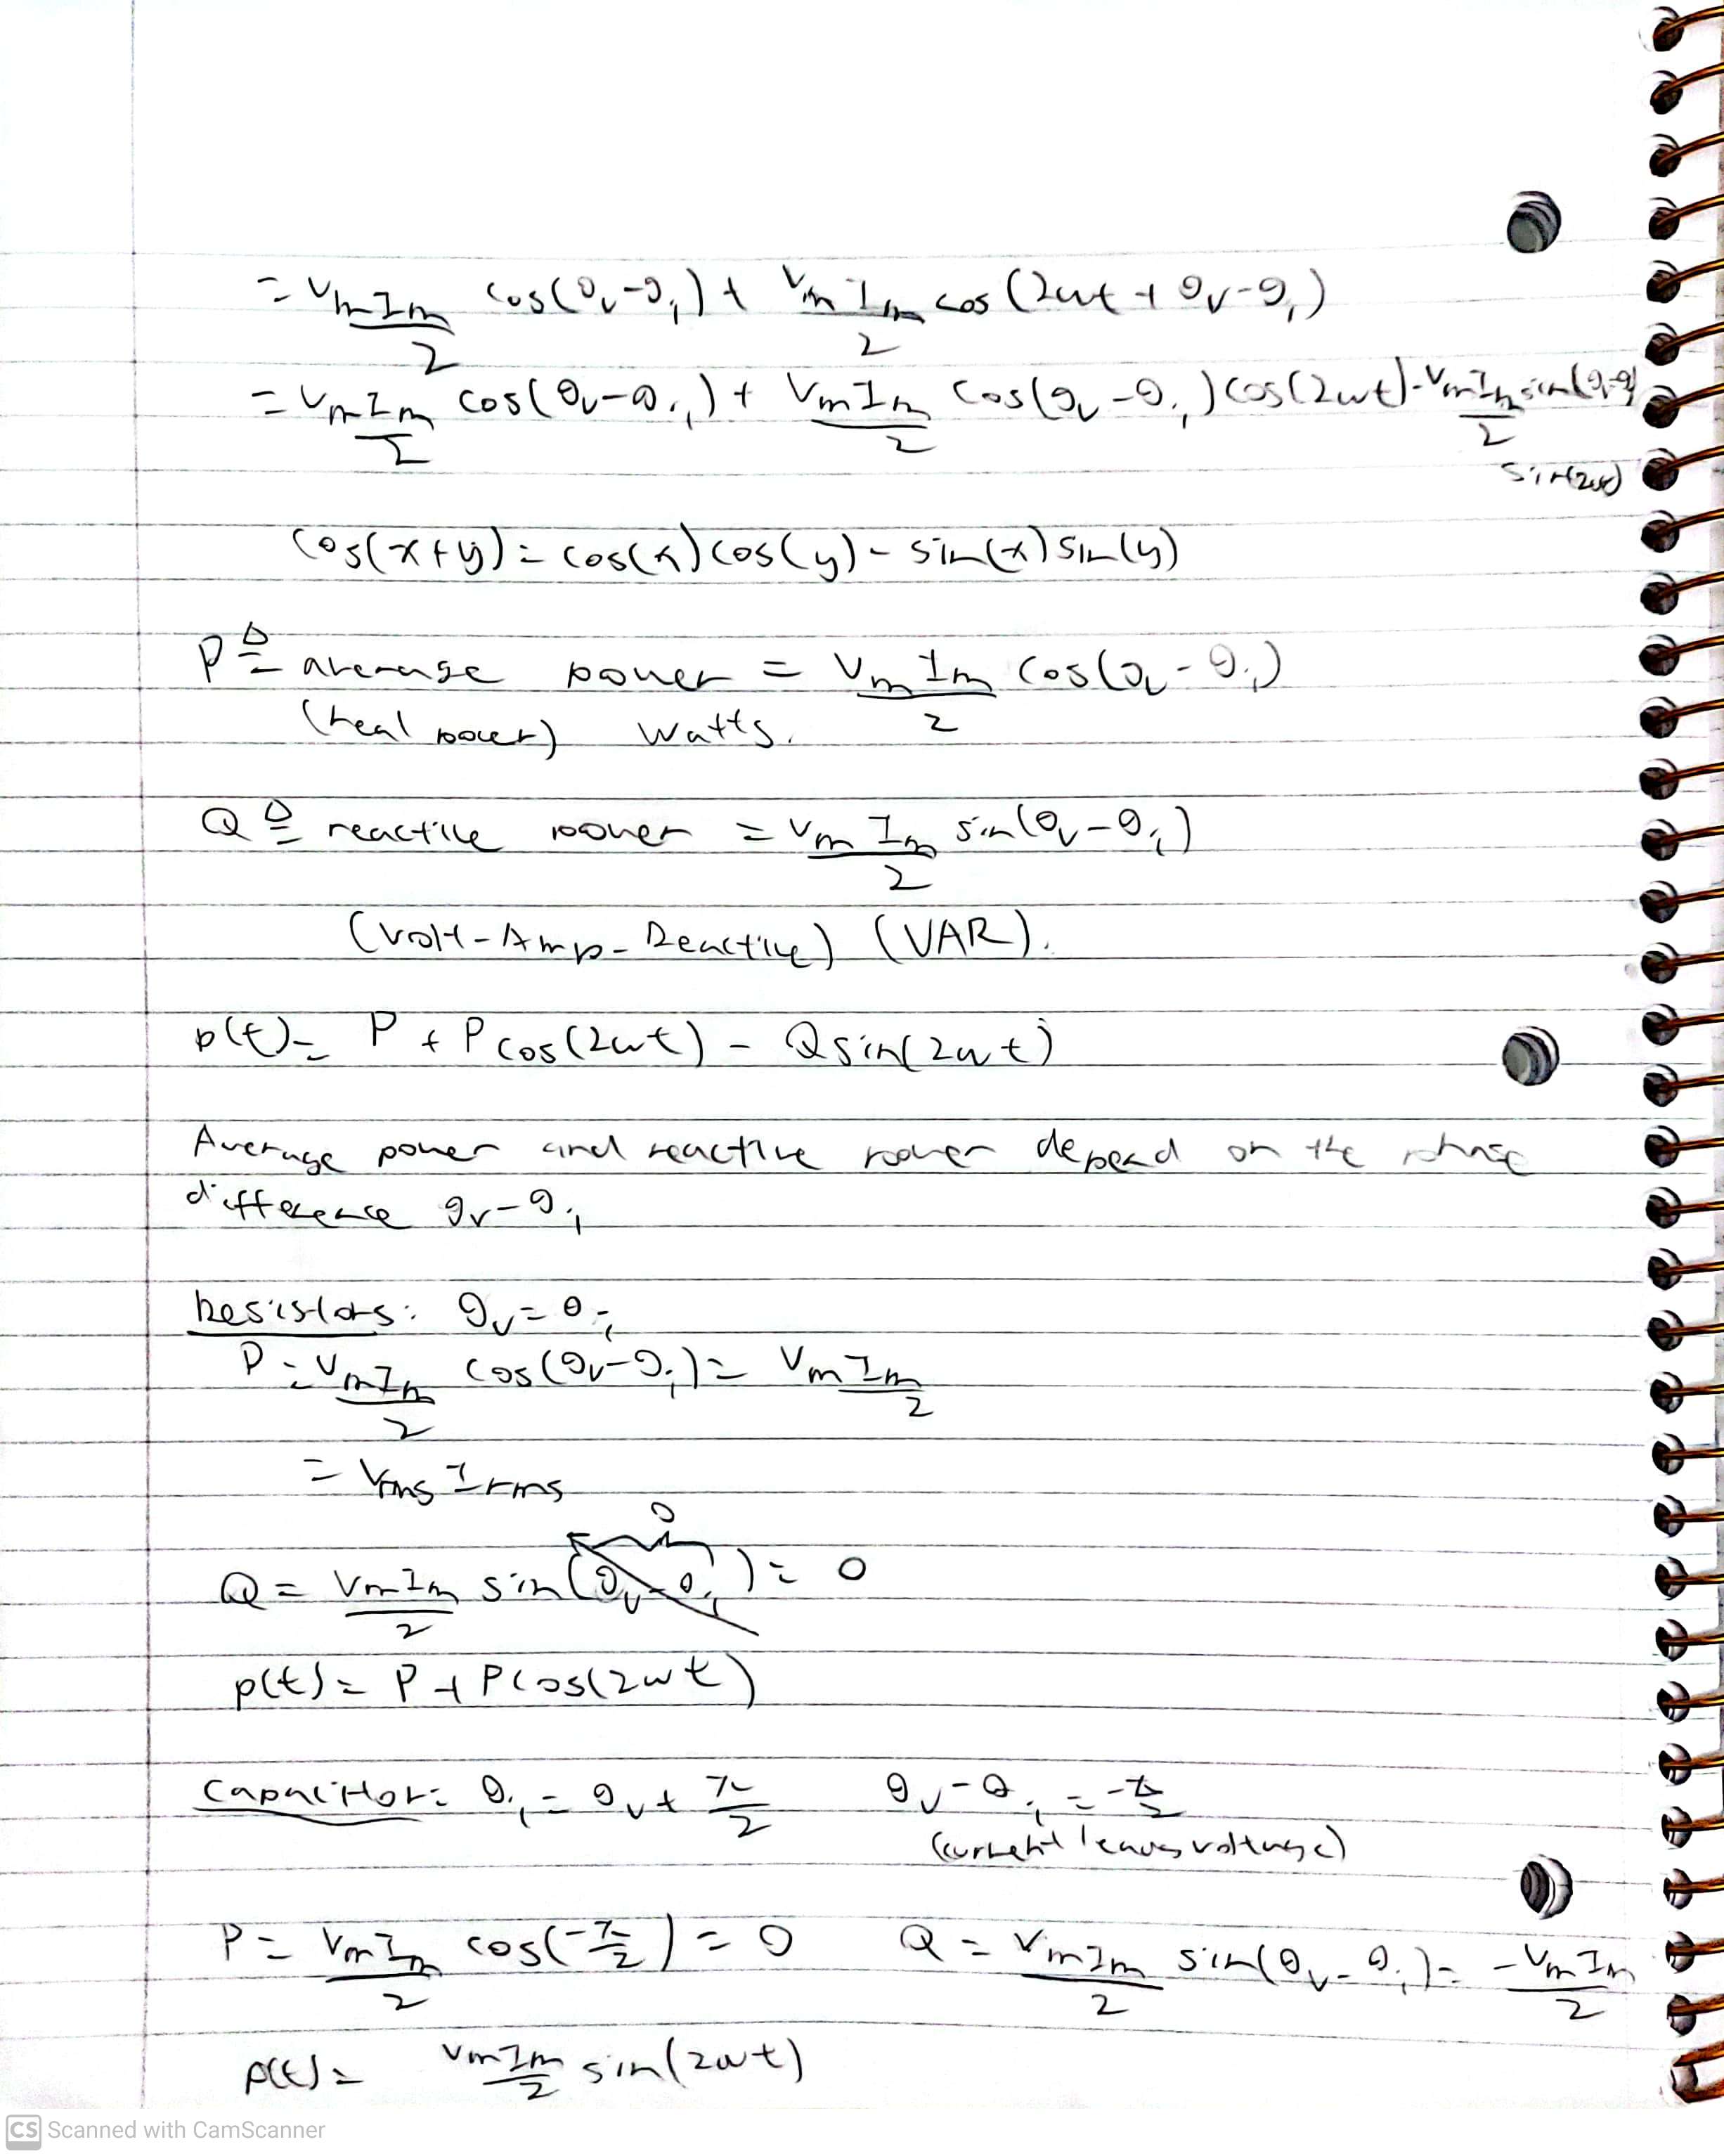 = VmIm/2 cos(θv-θi) + VmIm/2 cos(2ωt + θv-θi)
= VmIm/2 cos(θv-θi) + VmIm/2 cos(θv-θi) cos(2ωt) - VmIm/2 sin(θv-θi)
sin(2ωt)
cos(x+y) = cos(x)cos(y) - sin(x)sin(y)
P ≜ average power = VmIm/2 cos(θv-θi)
(real power) Watts.
Q ≜ reactive power = VmIm/2 sin(θv-θi)
(Volt-Amp-Reactive) (VAR).
p(t) = P + Pcos(2ωt) - Qsin(2ωt)
Average power and reactive power depend on the phase
difference θv-θi
Resistors: θv = θi
P = VmIm/2 cos(θv-θi) = VmIm/2
= Vrms Irms
0
Q = VmIm/2 sin(θv-θi) = 0
p(t) = P + Pcos(2ωt)
Capacitor: θi = θv + π/2 θv-θi = -π/2
(current leads voltage)
P = VmIm/2 cos(-π/2) = 0 Q = VmIm/2 sin(θv-θi) = -VmIm/2
p(t) = VmIm/2 sin(2ωt)
CS Scanned with CamScanner